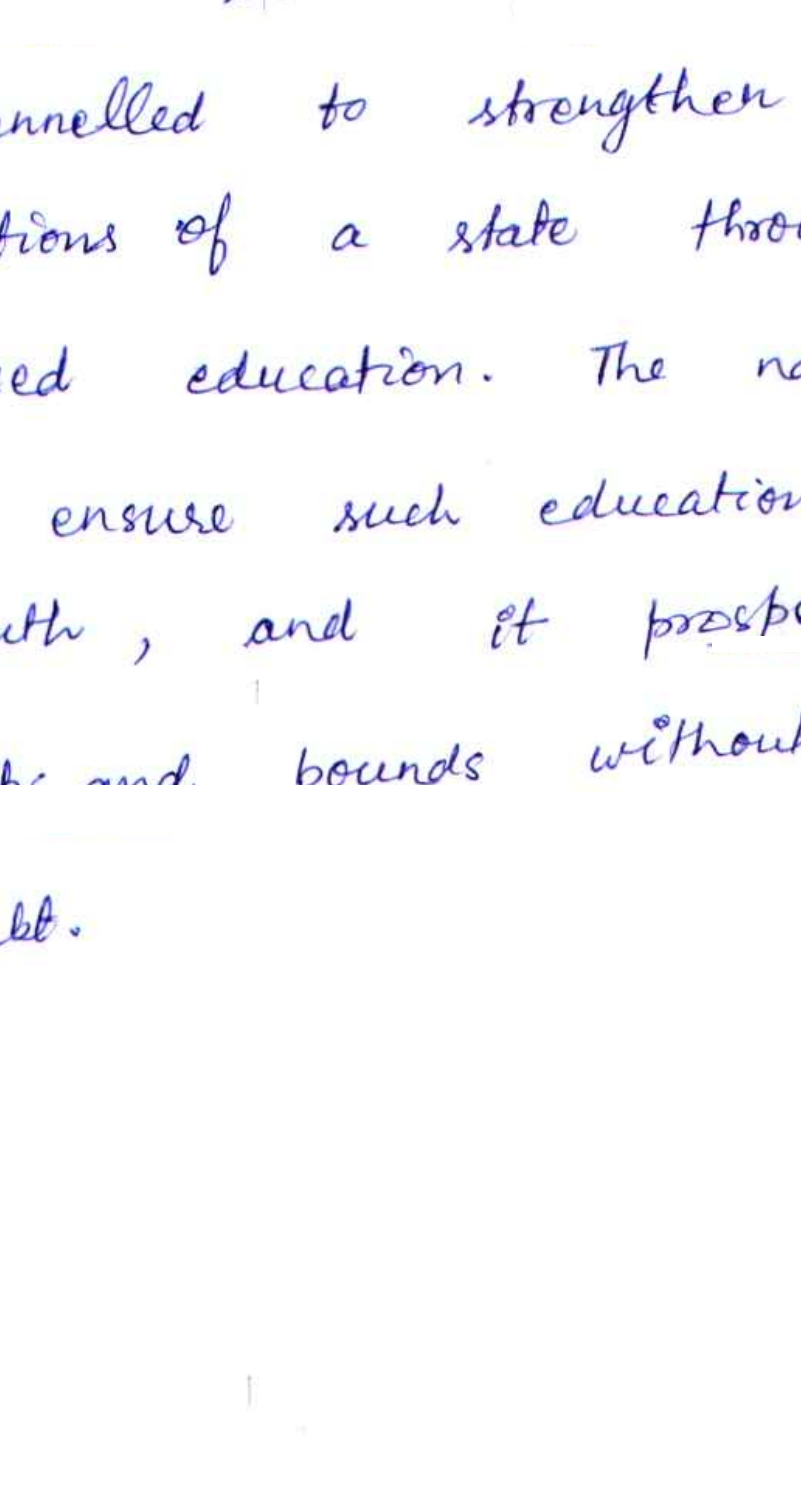 nnelled to strengthen
tions of a state thro
ed education. The na
ensure such education
uth, and it prospe
and bounds without
bt.